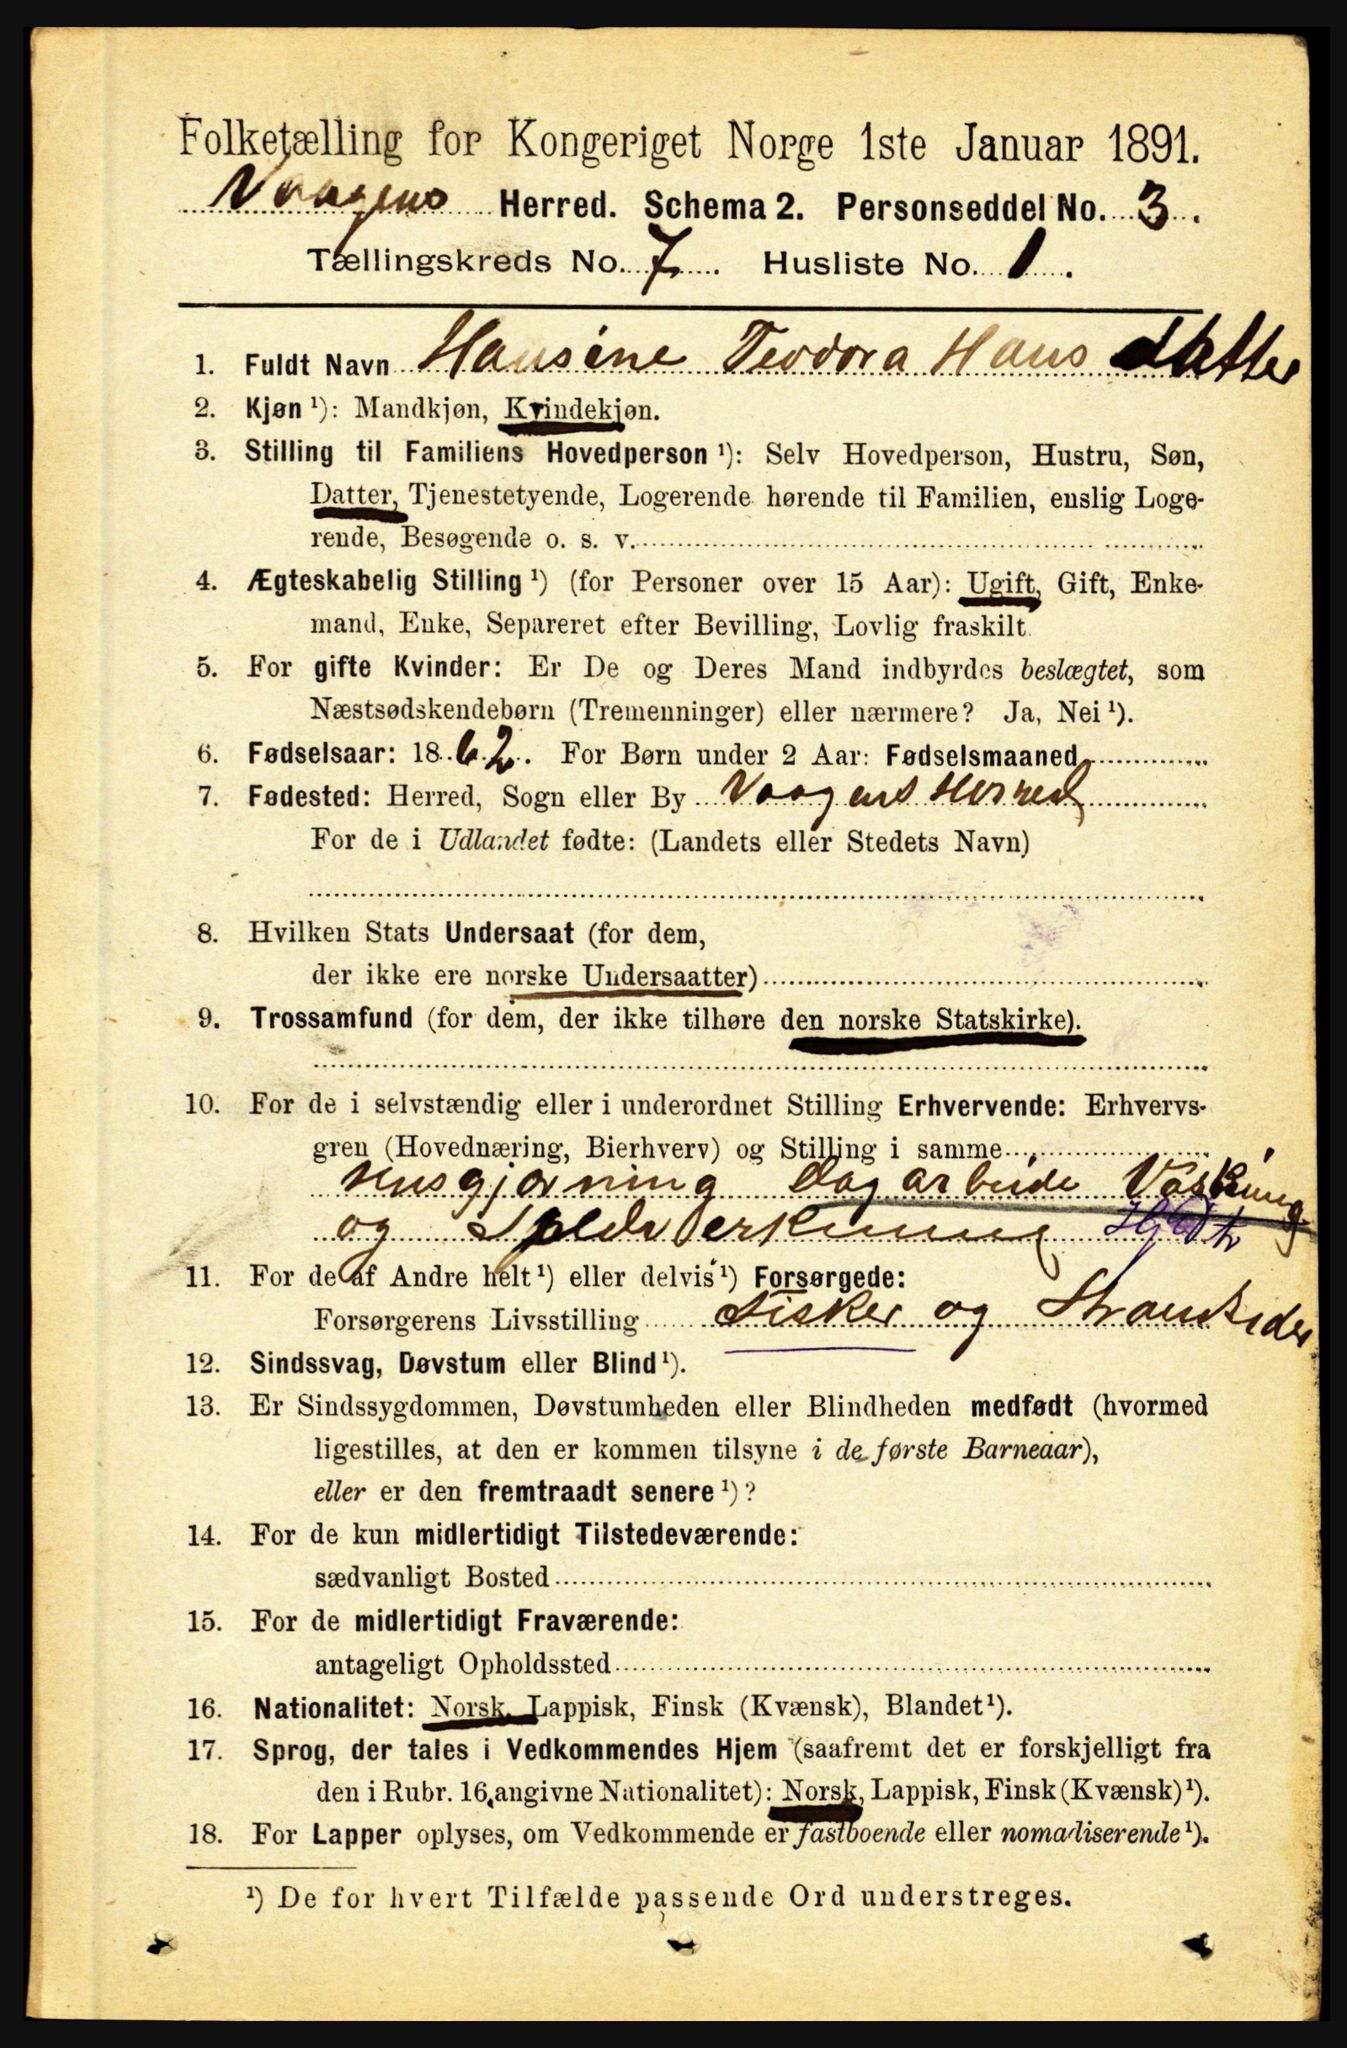 Folketælling for Kongeriget Norge 1ste Januar 1891.
Vaagens Herred. Schema 2. Personseddel No. 3.
Tællingskreds No. 7. Husliste No. 1.
1. Fuldt Navn Hansine Teodora Hans datter
2. Kjøn ¹): Mandkjøn, Kvindekjøn.
3. Stilling til Familiens Hovedperson ¹): Selv Hovedperson, Hustru, Søn,
Datter, Tjenestetyende, Logerende hørende til Familien, enslig Loge-
rende, Besøgende o. s. v.
4. Ægteskabelig Stilling ¹) (for Personer over 15 Aar): Ugift, Gift, Enke-
mand, Enke, Separeret efter Bevilling, Lovlig fraskilt.
5. For gifte Kvinder: Er De og Deres Mand indbyrdes beslægtet, som
Næstsødskendebørn (Tremenninger) eller nærmere? Ja, Nei ¹).
6. Fødselsaar: 1862. For Børn under 2 Aar: Fødselsmaaned
7. Fødested: Herred, Sogn eller By Vaagens Herred
For de i Udlandet fødte: (Landets eller Stedets Navn)
8. Hvilken Stats Undersaat (for dem,
der ikke ere norske Undersaatter)
9. Trossamfund (for dem, der ikke tilhøre den norske Statskirke).
10. For de i selvstændig eller i underordnet Stilling Erhvervende: Erhvervs-
gren (Hovednæring, Bierhverv) og Stilling i samme
Husgjærning Dagarbeide Vaskning
og
11. For de af Andre helt ¹) eller delvis ¹) Forsørgede:
Forsørgerens Livsstilling Fisker og Strandsider
12. Sindssvag, Døvstum eller Blind ¹).
13. Er Sindssygdommen, Døvstumheden eller Blindheden medfødt (hvormed
ligestilles, at den er kommen tilsyne i de første Barneaar),
eller er den fremtraadt senere ¹)?
14. For de kun midlertidigt Tilstedeværende:
sædvanligt Bosted
15. For de midlertidigt Fraværende:
antageligt Opholdssted
16. Nationalitet: Norsk, Lappisk, Finsk (Kvænsk), Blandet ¹).
17. Sprog, der tales i Vedkommendes Hjem (saafremt det er forskjelligt fra
den i Rubr. 16 angivne Nationalitet): Norsk, Lappisk, Finsk (Kvænsk) ¹).
18. For Lapper oplyses, om Vedkommende er fastboende eller nomadiserende ¹).
¹) De for hvert Tilfælde passende Ord understreges.